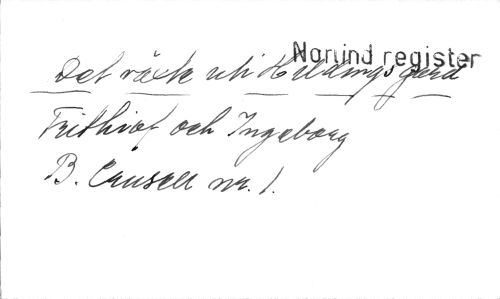 Norlind register
Det växte uti Hildings gård
Frithiof och Ingeborg
B. Crusell nr. 1.